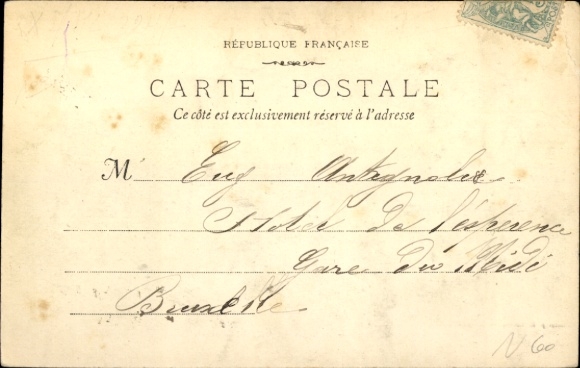 RÉPUBLIQUE FRANÇAISE
CARTE POSTALE
Ce côté est exclusivement réservé à l'adresse
M Eug
Hotel de l'esperence
Gare du Midi
Bruxelle
N 60